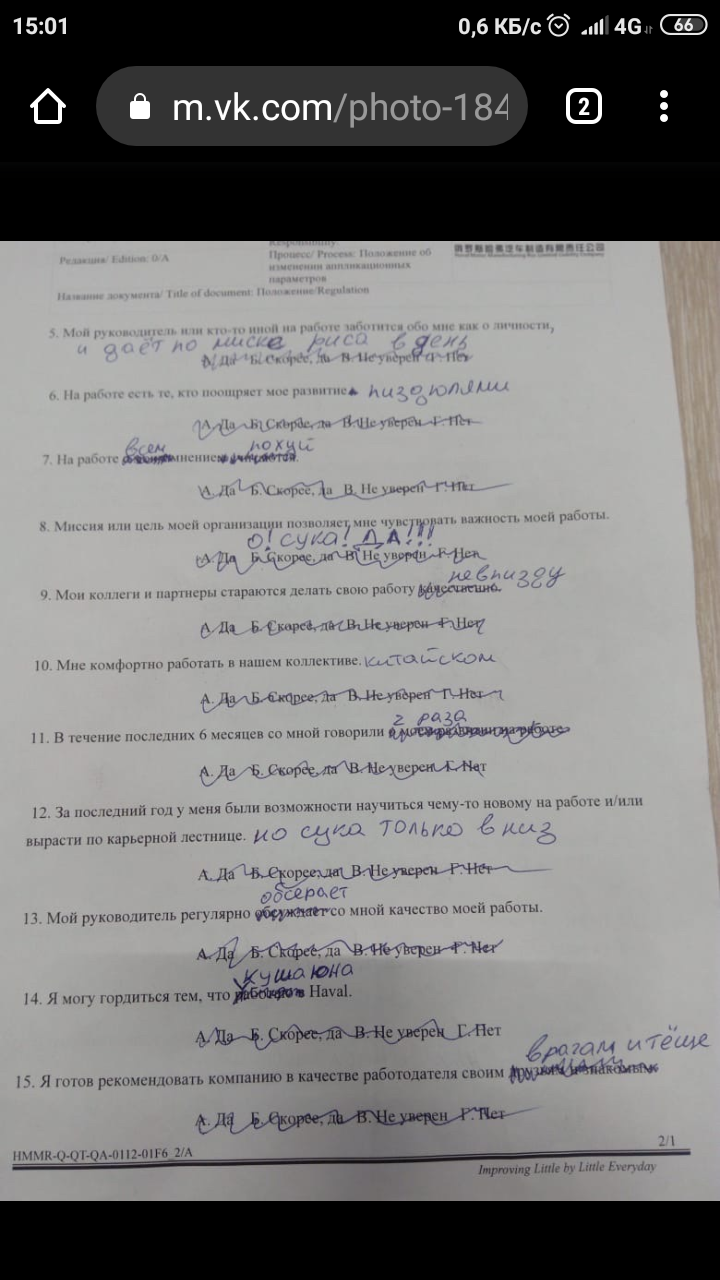 15:01 0,6 КБ/с 4G 66
m.vk.com/photo-184 2
Редакция/ Edition: 0/A
Процесс/ Process: Положение об
изменении аппликационных
параметров
Название документа/ Title of document: Положение/Regulation
5. Мой руководитель или кто-то иной на работе заботится обо мне как о личности,
и даёт по миске риса в день
А. Да Б. Скорее, да В. Не уверен Г. Нет
6. На работе есть те, кто поощряет мое развитие пиздюлями
А. Да Б. Скорее, да В. Не уверен Г. Нет
всем похуй
7. На работе мнение
А. Да Б. Скорее, да В. Не уверен Г. Нет
8. Миссия или цель моей организации позволяет мне чувствовать важность моей работы.
О! сука! ДА!!!
А. Да Б. Скорее, да В. Не уверен Г. Нет
невпизду
9. Мои коллеги и партнеры стараются делать свою работу качественно.
А. Да Б. Скорее, да В. Не уверен Г. Нет
10. Мне комфортно работать в нашем коллективе. китайском
А. Да Б. Скорее, да В. Не уверен Г. Нет
2 раза
11. В течение последних 6 месяцев со мной говорили о моем развитии на работе
А. Да Б. Скорее, да В. Не уверен Г. Нет
12. За последний год у меня были возможности научиться чему-то новому на работе и/или
вырасти по карьерной лестнице. но сука только вниз
А. Да Б. Скорее, да В. Не уверен Г. Нет
обсерает
13. Мой руководитель регулярно обсуждает со мной качество моей работы.
А. Да Б. Скорее, да В. Не уверен Г. Нет
кушаю на
14. Я могу гордиться тем, что работаю в Haval.
А. Да Б. Скорее, да В. Не уверен Г. Нет
врагам и тёще
15. Я готов рекомендовать компанию в качестве работодателя своим друзьям и знакомым.
А. Да Б. Скорее, да В. Не уверен Г. Нет
HMMR-Q-QT-QA-0112-01F6_2/A 2/1
Improving Little by Little Everyday